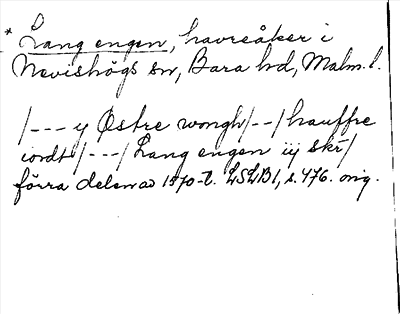 * Lang engen, havreåker i
Nevishögs sn, Bara hd, Malm. l.
/--- y Østre wongh/--/hauffre
iordt/---/Lang engen iij skr/
förra delen av 1570-t. LSLB1, s. 476. orig.